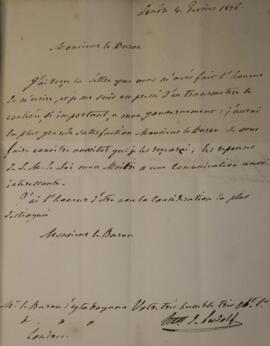 Londres 4. Février 1826
Monsieur le Baron
J'ai reçu la lettre que vous m'avez fait l'honneur
de m'écrire, et je me suis empressé d'en transmettre le
contenu si important, a mon gouvernement; j'aurai
la plus grande satisfaction Monsieur le Baron, de vous
faire connaitre aussitot que je les reçevrai, les reponses
de S. M. le Roi mon Maitre a une comunication aussi
interessante.
J'ai l'honneur d'être avec la consideration la plus
distinguée
Monsieur le Baron
Mr. le Baron d'Itabayana Votre très humble très
Londres. Ludolf